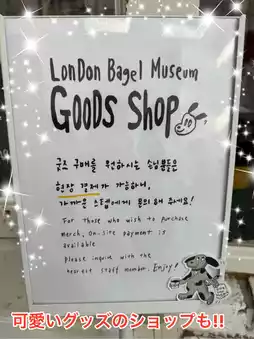 LonDon Bagel Museum
GOODS SHOP
굿즈 구매를 원하시는 손님분들은
현장 결제가 가능하니,
가까운 스텝에게 문의해 주세요!
For Those who wish to purchase
merch, On-site payment is
available
please inquire with the
nearest staff member. Enjoy!
可愛いグッズのショップも!!